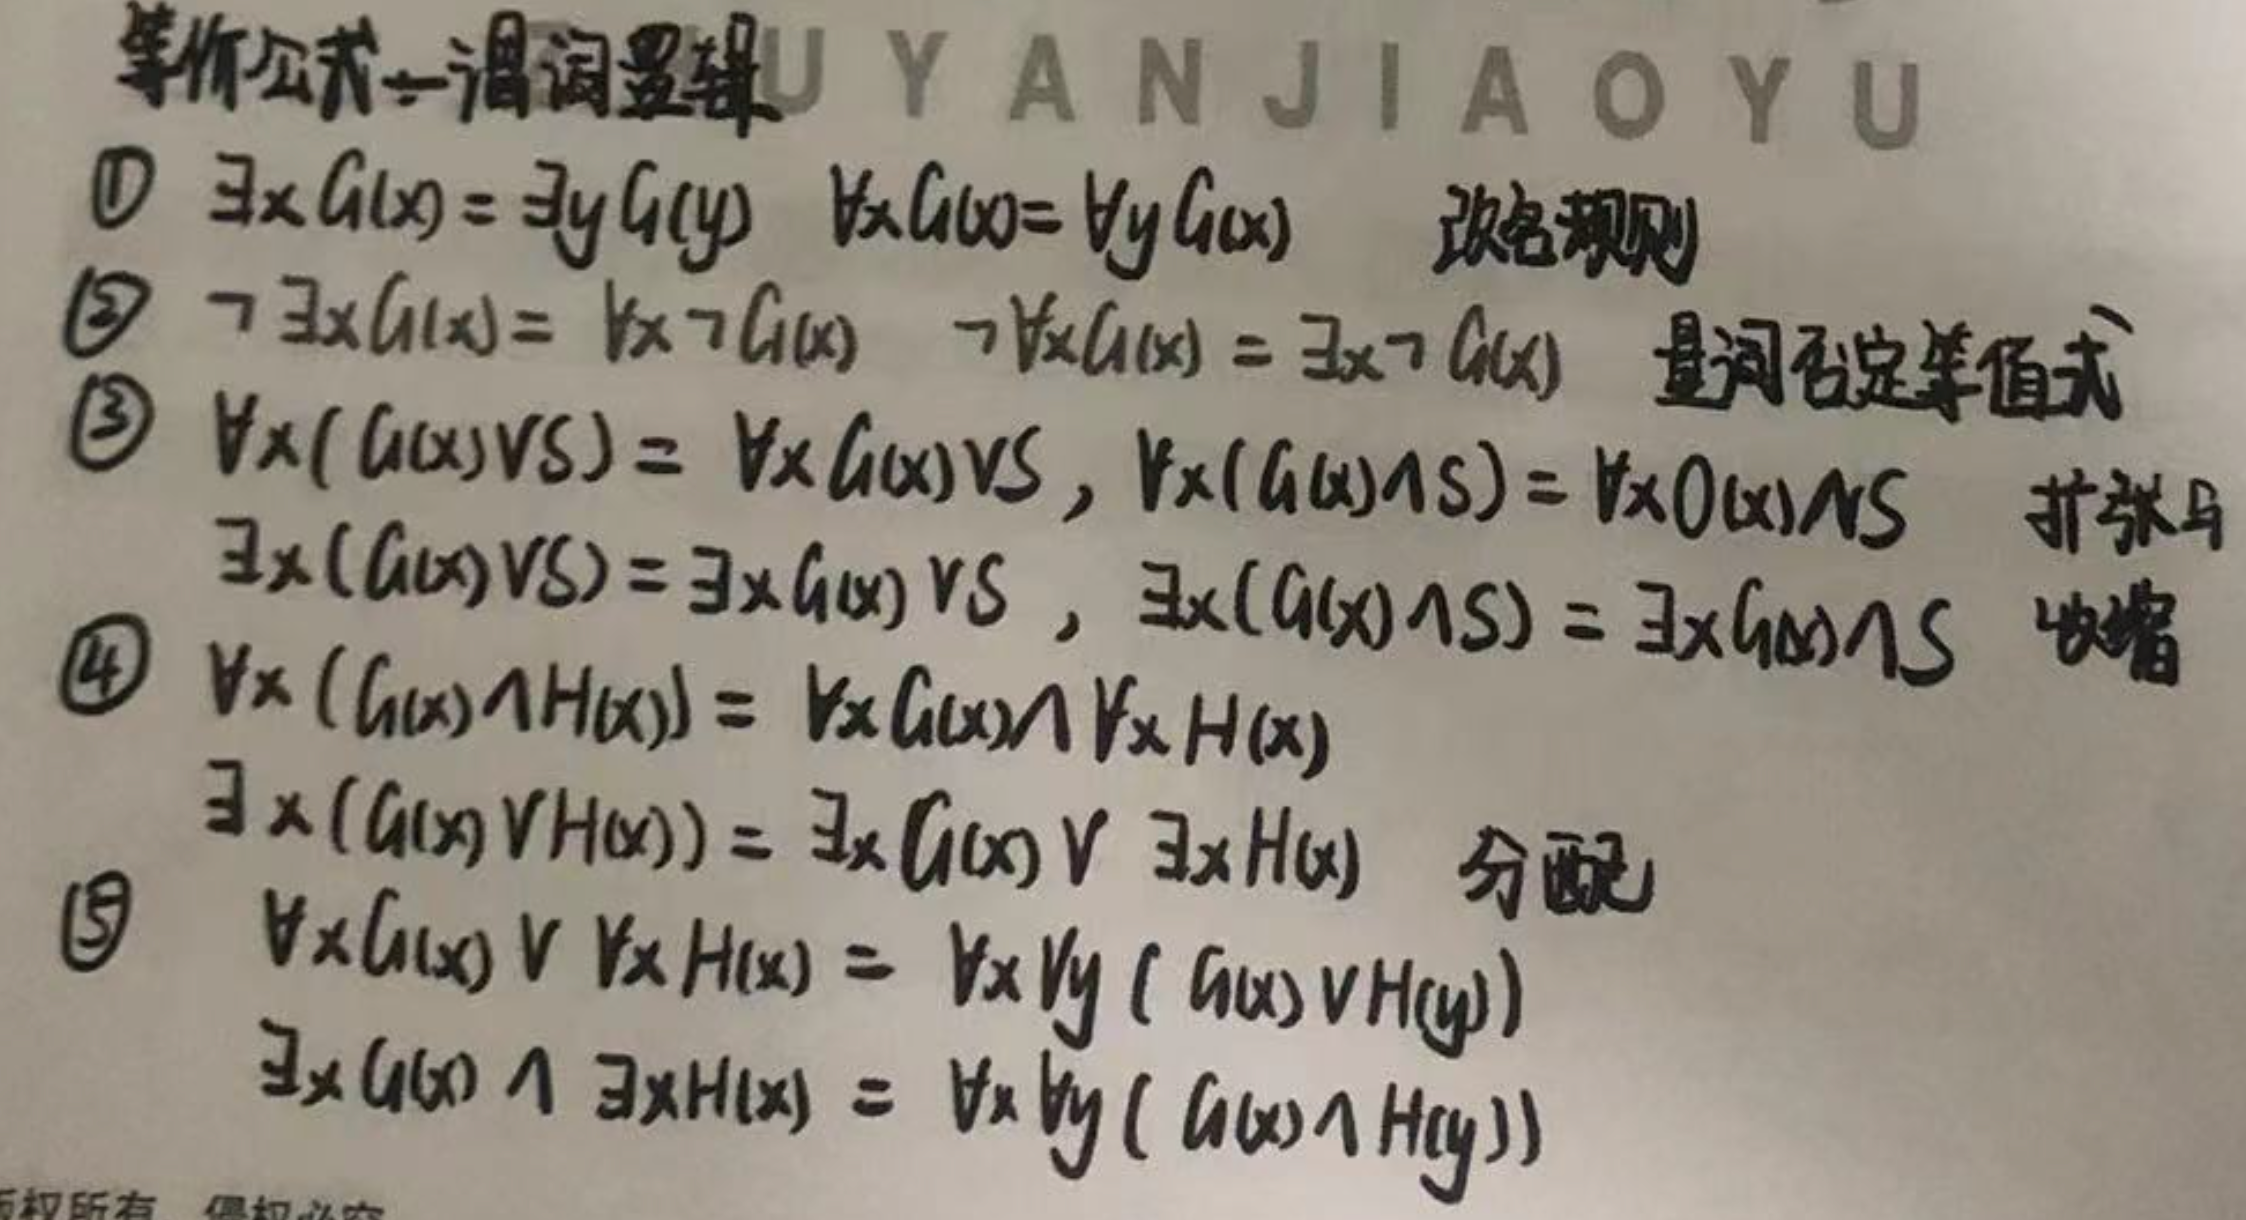 等价公式—谓词逻辑
UYANJIAOYU
① ∃xG(x)=∃yG(y) ∀xG(x)=∀yG(x) 改名规则
② ¬∃xG(x)=∀x¬G(x) ¬∀xG(x)=∃x¬G(x) 量词否定等值式
③ ∀x(G(x)∨S)=∀xG(x)∨S, ∀x(G(x)∧S)=∀xG(x)∧S 扩张与
∃x(G(x)∨S)=∃xG(x)∨S, ∃x(G(x)∧S)=∃xG(x)∧S 收缩
④ ∀x(G(x)∧H(x))=∀xG(x)∧∀xH(x)
∃x(G(x)∨H(x))=∃xG(x)∨∃xH(x) 分配
⑤ ∀xG(x)∨∀xH(x)=∀x∀y(G(x)∨H(y))
∃xG(x)∧∃xH(x)=∀x∀y(G(x)∧H(y))
版权所有 侵权必究